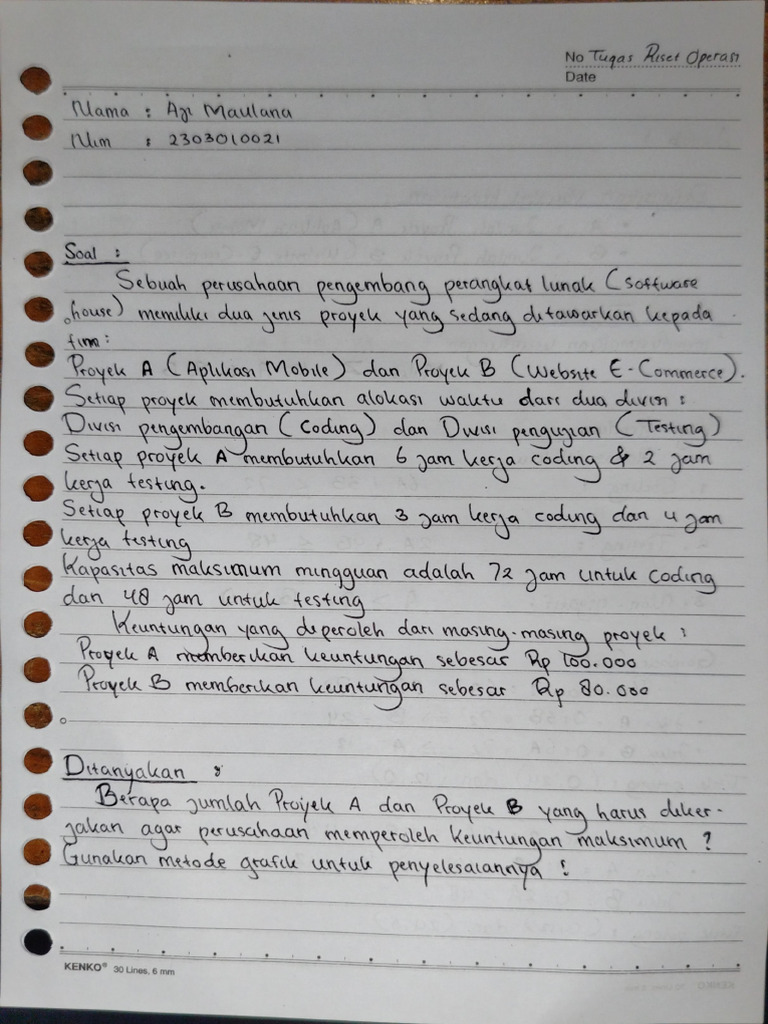 No Tugas Riset Operasi
Date
Nama : Aji Maulana
Nim : 2303010021
Soal :
Sebuah perusahaan pengembang perangkat lunak (software
house) memiliki dua jenis proyek yang sedang ditawarkan kepada
tim:
Proyek A (Aplikasi Mobile) dan Proyek B (Website E-Commerce).
Setiap proyek membutuhkan alokasi waktu dari dua divisi :
Divisi pengembangan (Coding) dan Divisi pengujian (Testing)
Setiap proyek A membutuhkan 6 jam kerja coding & 2 jam
kerja testing.
Setiap proyek B membutuhkan 3 jam kerja coding dan 4 jam
kerja testing
Kapasitas maksimum mingguan adalah 72 jam untuk coding
dan 48 jam untuk testing
Keuntungan yang diperoleh dari masing-masing proyek :
Proyek A memberikan keuntungan sebesar Rp 100.000
Proyek B memberikan keuntungan sebesar Rp 80.000
Ditanyakan :
Berapa jumlah Proyek A dan Proyek B yang harus diker-
jakan agar perusahaan memperoleh keuntungan maksimum ?
Gunakan metode grafik untuk penyelesaiannya !
KENKO® 30 Lines, 6 mm